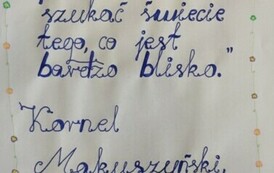 szukać świecie
tego, co jest
bardzo blisko."
Kornel
Makuszyński.